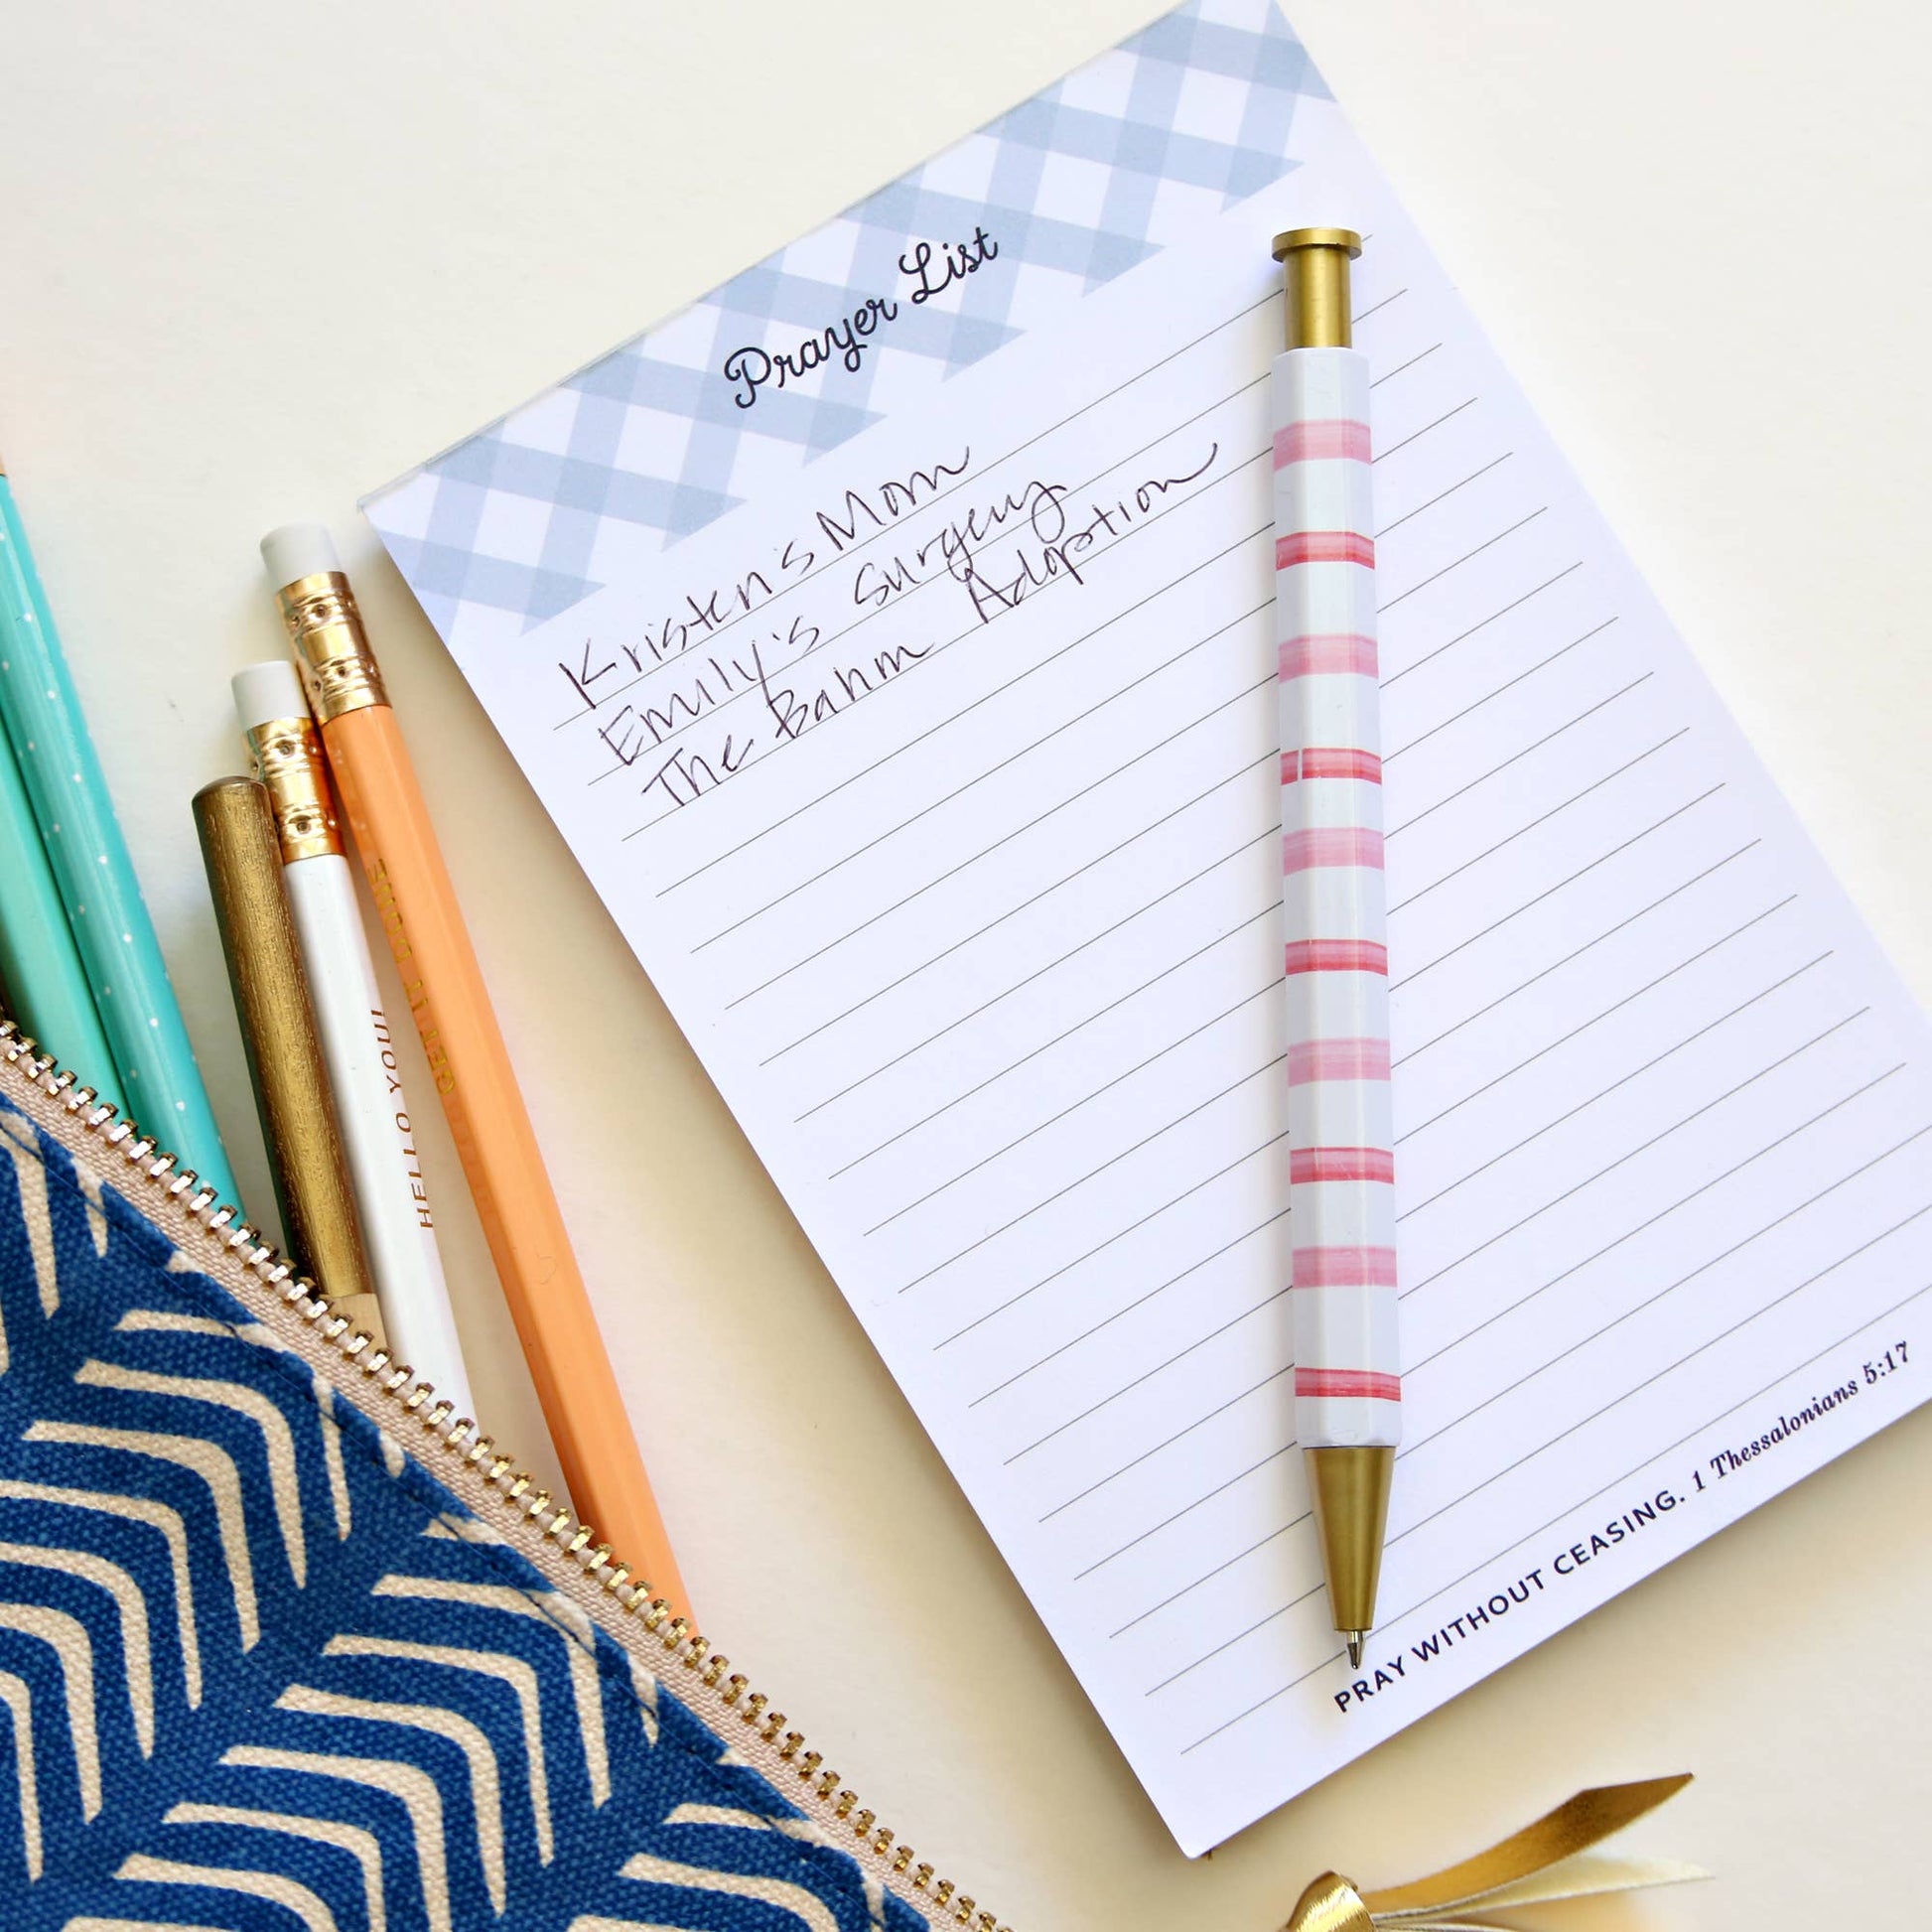 Prayer List
Kristen's Mom
Emily's Surgery
The Bahm Adoption
PRAY WITHOUT CEASING. 1 Thessalonians 5:17
HELLO YOU!
GET IT DONE